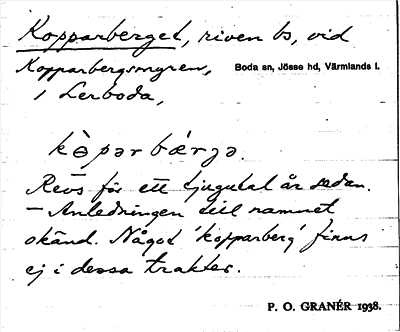 Kopparberget, riven bs, vid
Kopparbergsmyren, Boda sn, Jösse hd, Värmlands l.
i Lerboda,
kɵ̀pər bǽrjə.
Revs för ett tjugutal år sedan.
– Anledningen till namnet
okänd. Något 'kopparberg' finns
ej i dessa trakter.
P. O. GRANÉR 1938.